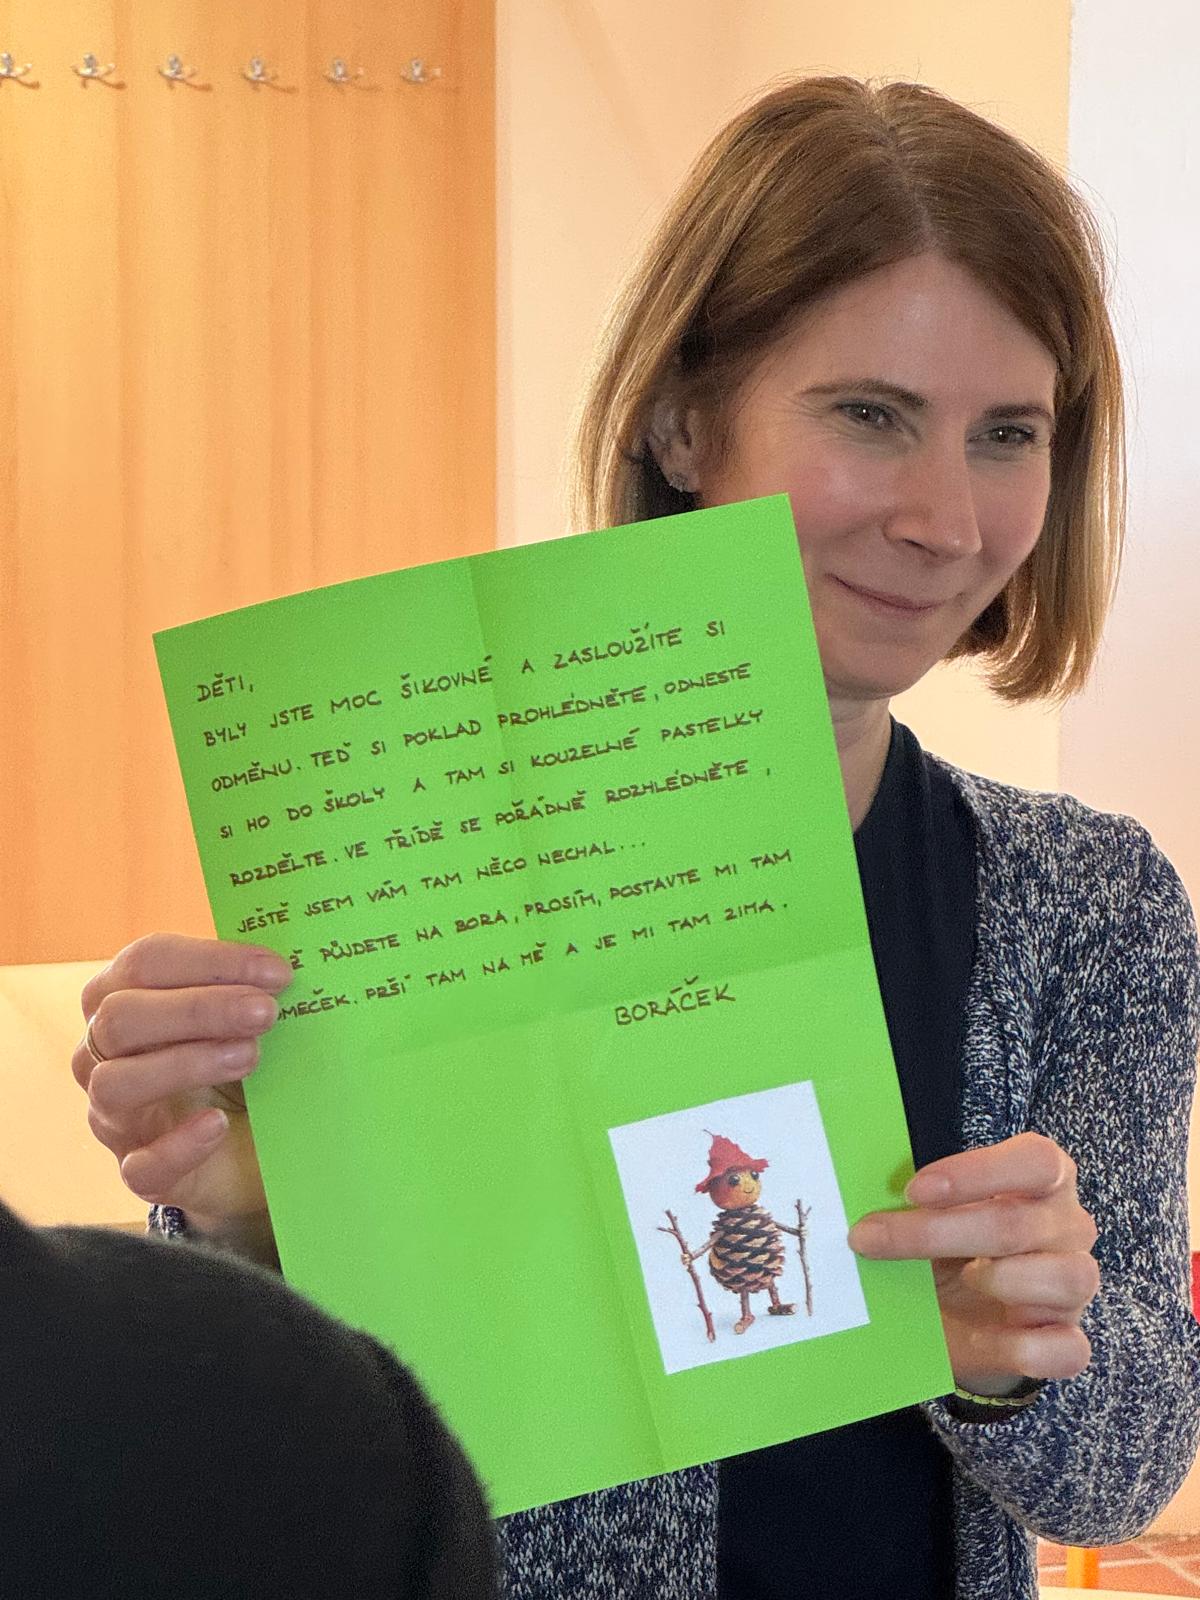 DĚTI,
BYLY JSTE MOC ŠIKOVNÉ A ZASLOUŽÍTE SI
ODMĚNU. TEĎ SI POKLAD PROHLÉDNĚTE, ODNESTE
SI HO DO ŠKOLY A TAM SI KOUZELNÉ PASTELKY
ROZDĚLTE. VE TŘÍDĚ SE POŘÁDNĚ ROZHLÉDNĚTE,
JEŠTĚ JSEM VÁM TAM NĚCO NECHAL...
PŮJDETE NA BORA, PROSÍM, POSTAVTE MI TAM
PRŠÍ TAM NA MĚ A JE MI TAM ZIMA.
BORÁČEK